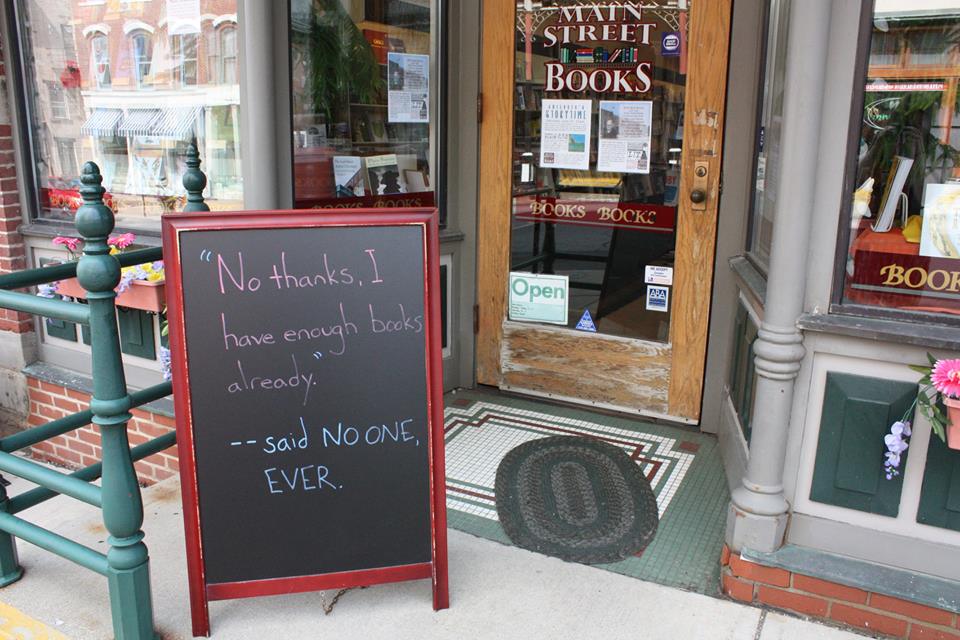 MAIN
STREET
BOOKS
STORYTIME
BOOKS BOOKS
BOOKS BOOKS
Open
WE ACCEPT
ABA
BOOK
"No thanks, I
have enough books
already."
-- said NO ONE,
EVER.